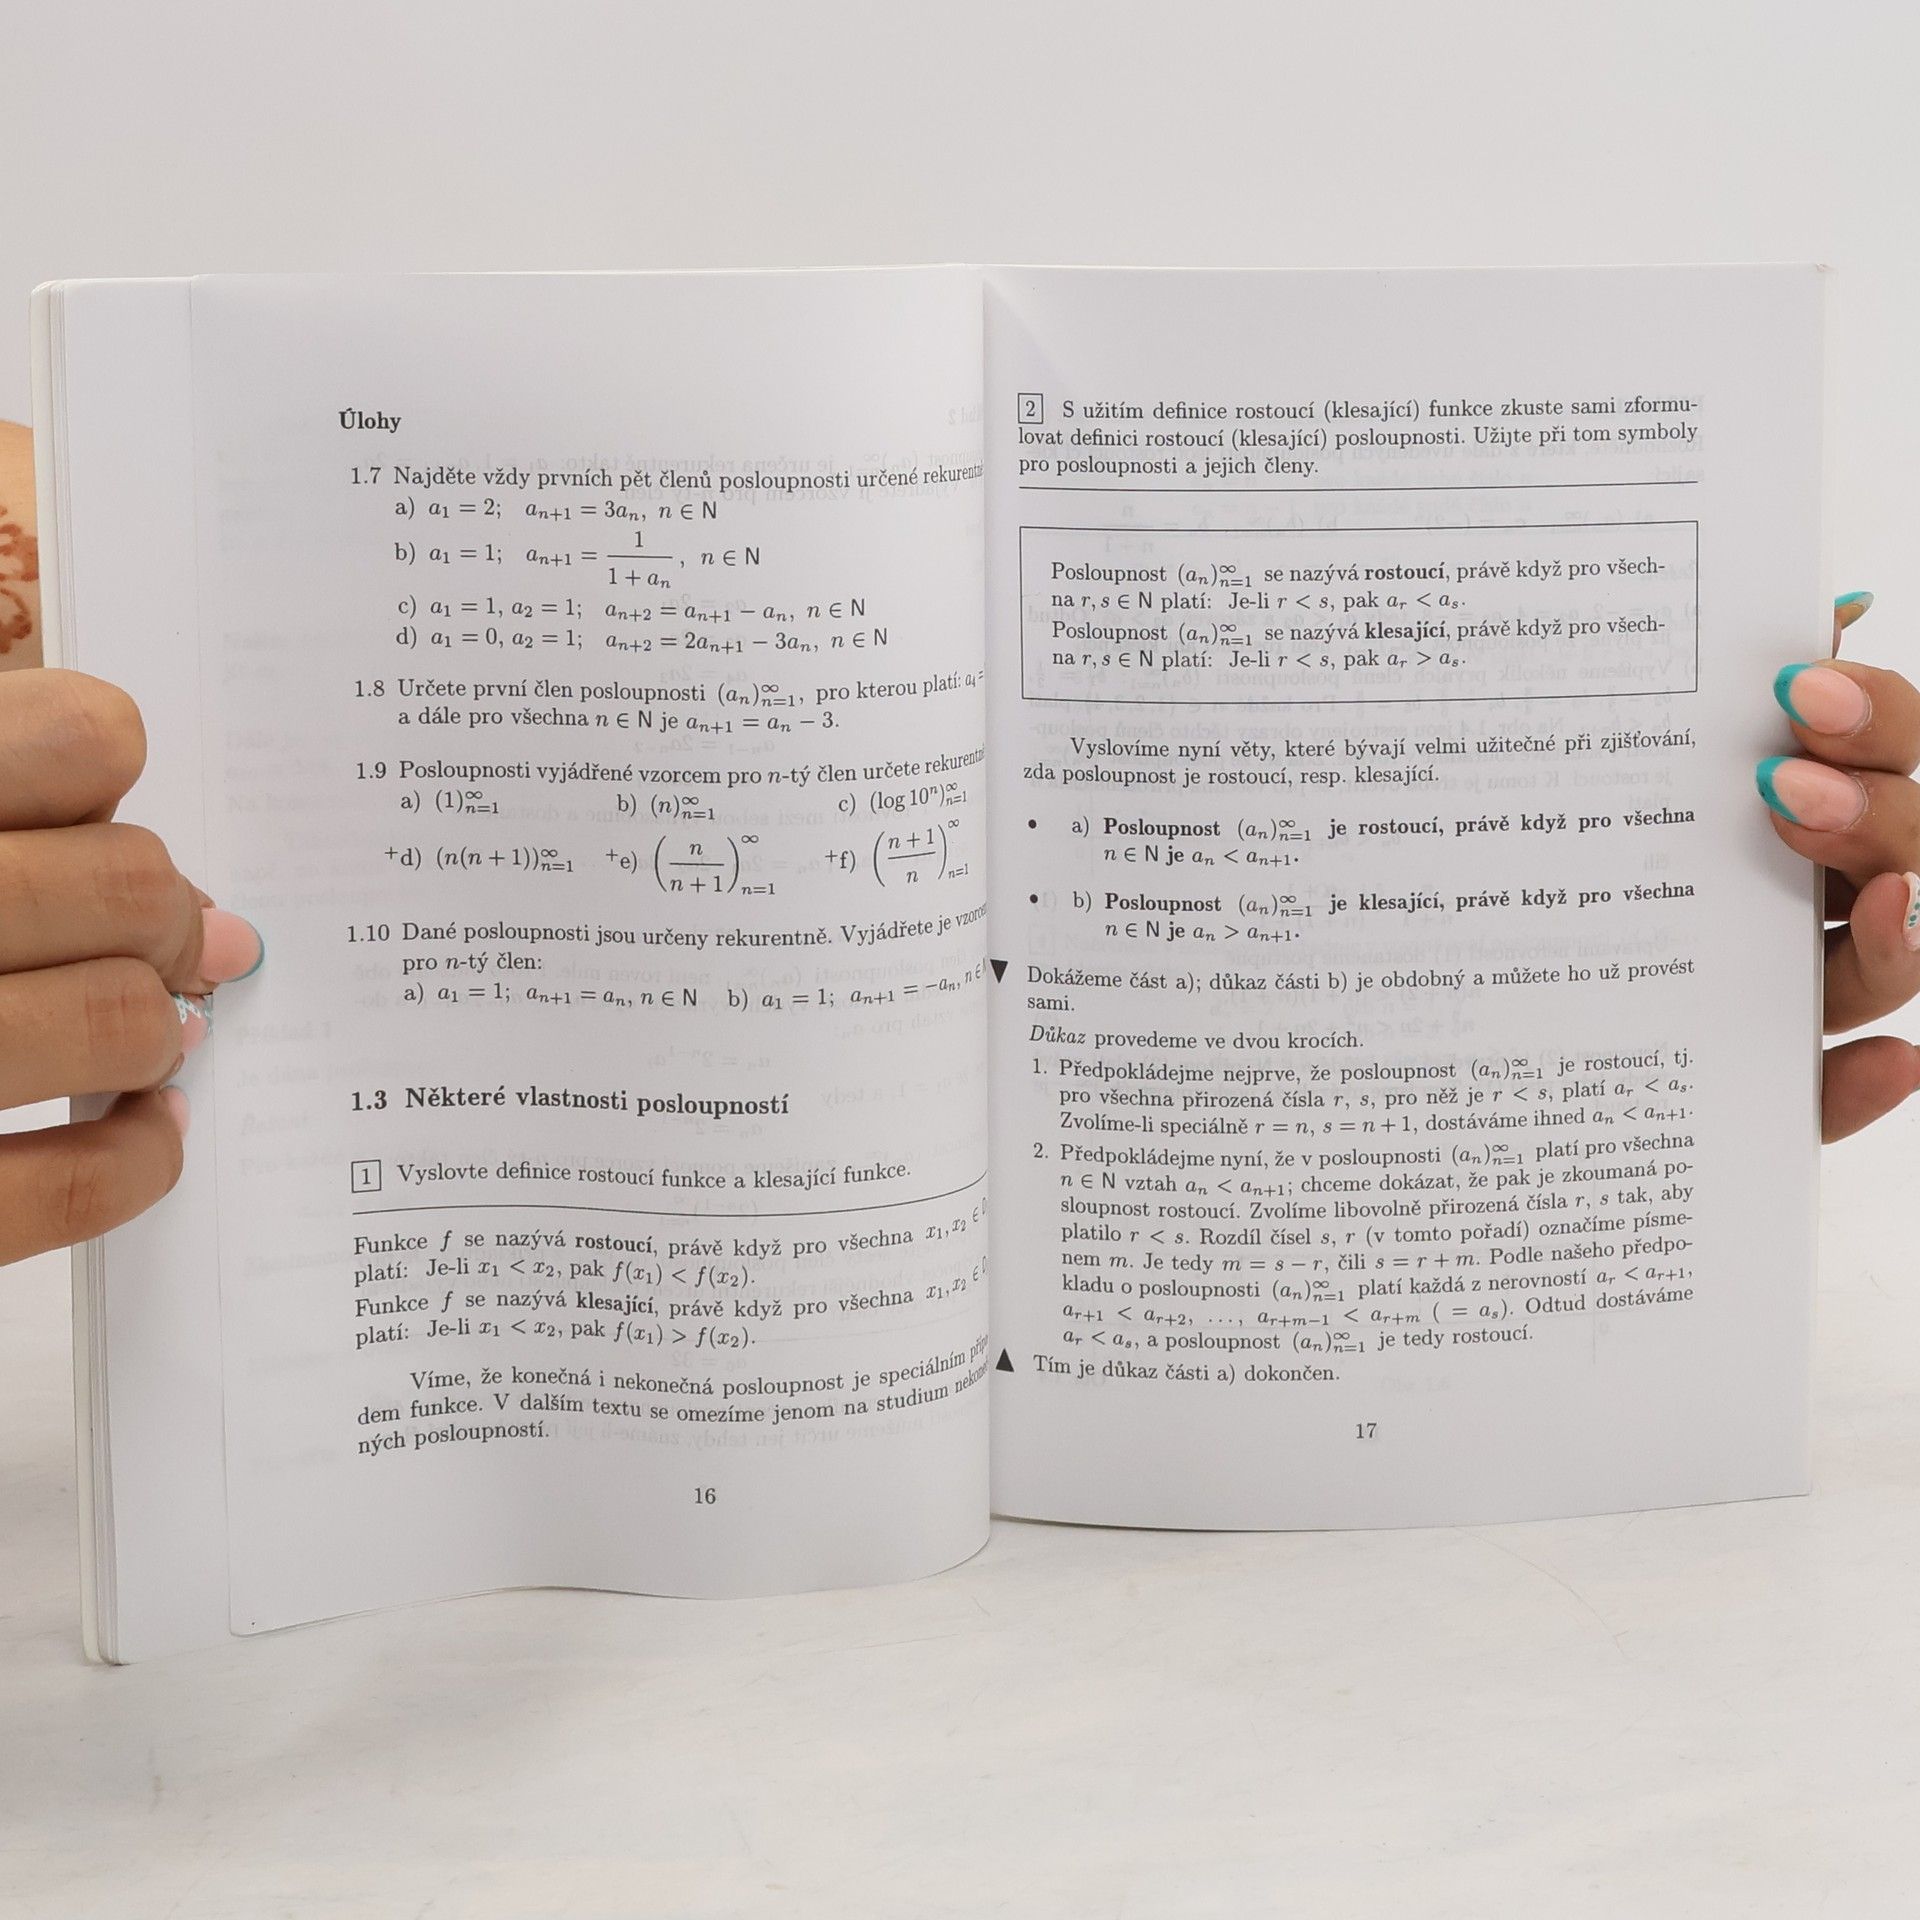 Úlohy
1.7 Najděte vždy prvních pět členů posloupnosti určené
a) a₁ = 2; aₙ₊₁ = 3aₙ, n ∈ N
b) a₁ = 1; aₙ₊₁ = 1/(1 + aₙ), n ∈ N
c) a₁ = 1, a₂ = 1; aₙ₊₂ = aₙ₊₁ − aₙ, n ∈ N
d) a₁ = 0, a₂ = 1; aₙ₊₂ = 2aₙ₊₁ − 3aₙ, n ∈ N
1.8 Určete první člen posloupnosti (aₙ)∞ₙ₌₁, pro kterou platí: a₄ =
a dále pro všechna n ∈ N je aₙ₊₁ = aₙ − 3.
1.9 Posloupnosti vyjádřené vzorcem pro n-tý člen určete
a) (1)∞ₙ₌₁ b) (n)∞ₙ₌₁ c) (log 10ⁿ)∞ₙ₌₁
+d) (n(n + 1))∞ₙ₌₁ +e) (n/(n + 1))∞ₙ₌₁ +f) ((n + 1)/n)∞ₙ₌₁
1.10 Dané posloupnosti jsou určeny rekurentně. Vyjádřete je
pro n-tý člen:
a) a₁ = 1; aₙ₊₁ = aₙ, n ∈ N b) a₁ = 1; aₙ₊₁ = −aₙ, n ∈
1.3 Některé vlastnosti posloupností
1 Vyslovte definice rostoucí funkce a klesající funkce.
Funkce f se nazývá rostoucí, právě když pro všechna x₁, x₂ ∈
platí: Je-li x₁ < x₂, pak f(x₁) < f(x₂).
Funkce f se nazývá klesající, právě když pro všechna x₁, x₂ ∈
platí: Je-li x₁ < x₂, pak f(x₁) > f(x₂).
Víme, že konečná i nekonečná posloupnost je speciálním
dem funkce. V dalším textu se omezíme jenom na studium
ných posloupností.
16
2 S užitím definice rostoucí (klesající) funkce zkuste sami zformu-
lovat definici rostoucí (klesající) posloupnosti. Užijte při tom symboly
pro posloupnosti a jejich členy.
Posloupnost (aₙ)∞ₙ₌₁ se nazývá rostoucí, právě když pro všech-
na r, s ∈ N platí: Je-li r < s, pak aᵣ < aₛ.
Posloupnost (aₙ)∞ₙ₌₁ se nazývá klesající, právě když pro všech-
na r, s ∈ N platí: Je-li r < s, pak aᵣ > aₛ.
Vyslovíme nyní věty, které bývají velmi užitečné při zjišťování,
zda posloupnost je rostoucí, resp. klesající.
• a) Posloupnost (aₙ)∞ₙ₌₁ je rostoucí, právě když pro všechna
n ∈ N je aₙ < aₙ₊₁.
• b) Posloupnost (aₙ)∞ₙ₌₁ je klesající, právě když pro všechna
n ∈ N je aₙ > aₙ₊₁.
▼ Dokážeme část a); důkaz části b) je obdobný a můžete ho už provést
sami.
Důkaz provedeme ve dvou krocích.
1. Předpokládejme nejprve, že posloupnost (aₙ)∞ₙ₌₁ je rostoucí, tj.
pro všechna přirozená čísla r, s, pro něž je r < s, platí aᵣ < aₛ.
Zvolíme-li speciálně r = n, s = n + 1, dostáváme ihned aₙ < aₙ₊₁.
2. Předpokládejme nyní, že v posloupnosti (aₙ)∞ₙ₌₁ platí pro všechna
n ∈ N vztah aₙ < aₙ₊₁; chceme dokázat, že pak je zkoumaná po-
sloupnost rostoucí. Zvolíme libovolně přirozená čísla r, s tak, aby
platilo r < s. Rozdíl čísel s, r (v tomto pořadí) označíme písme-
nem m. Je tedy m = s − r, čili s = r + m. Podle našeho předpo-
kladu o posloupnosti (aₙ)∞ₙ₌₁ platí každá z nerovností aᵣ < aᵣ₊₁,
aᵣ₊₁ < aᵣ₊₂, ..., aᵣ₊ₘ₋₁ < aᵣ₊ₘ ( = aₛ). Odtud dostáváme
aᵣ < aₛ, a posloupnost (aₙ)∞ₙ₌₁ je tedy rostoucí.
▲ Tím je důkaz části a) dokončen.
17